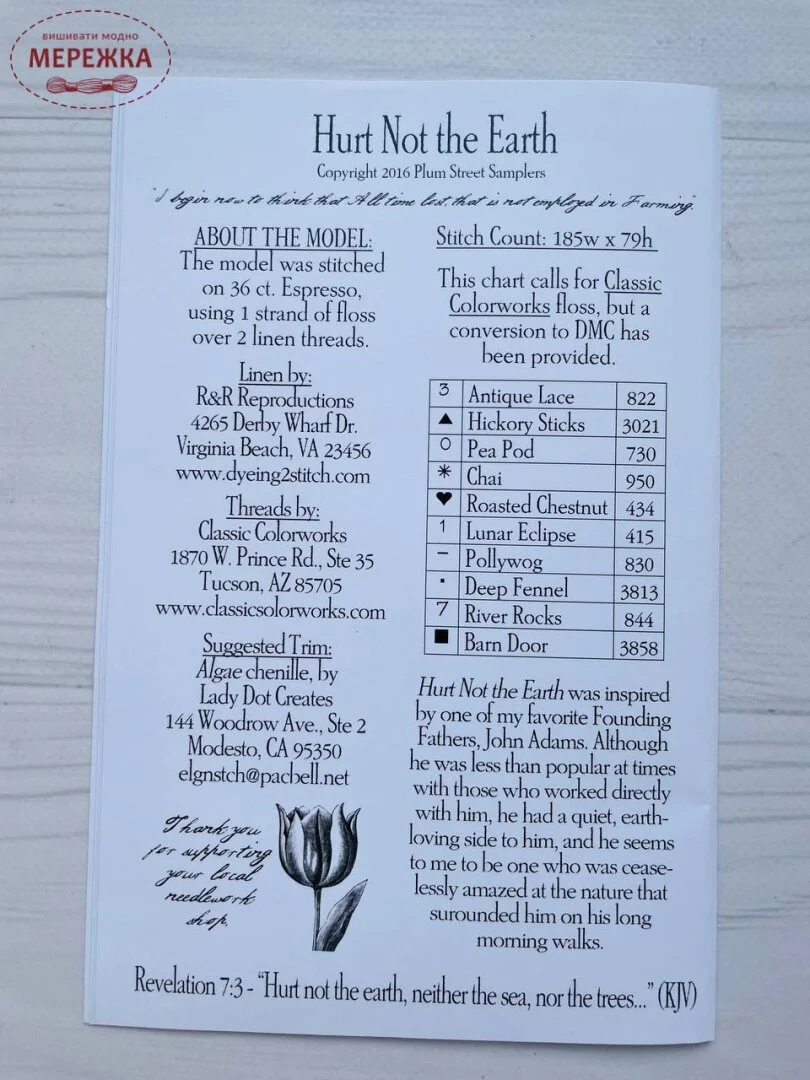 вишивати модно
МЕРЕЖКА
Hurt Not the Earth
Copyright 2016 Plum Street Samplers
"I begin now to think that All time lost, that is not employed in Farming."
ABOUT THE MODEL:
The model was stitched
on 36 ct. Espresso,
using 1 strand of floss
over 2 linen threads.
Linen by:
R&R Reproductions
4265 Derby Wharf Dr.
Virginia Beach, VA 23456
www.dyeing2stitch.com
Threads by:
Classic Colorworks
1870 W. Prince Rd., Ste 35
Tucson, AZ 85705
www.classicsolorworks.com
Suggested Trim:
Algae chenille, by
Lady Dot Creates
144 Woodrow Ave., Ste 2
Modesto, CA 95350
elgnstch@pacbell.net
Thank you
for supporting
your local
needlework
shop.
Stitch Count: 185w x 79h
This chart calls for Classic
Colorworks floss, but a
conversion to DMC has
been provided.
3 Antique Lace 822
▲ Hickory Sticks 3021
○ Pea Pod 730
✳ Chai 950
♥ Roasted Chestnut 434
1 Lunar Eclipse 415
− Pollywog 830
▪ Deep Fennel 3813
7 River Rocks 844
■ Barn Door 3858
Hurt Not the Earth was inspired
by one of my favorite Founding
Fathers, John Adams. Although
he was less than popular at times
with those who worked directly
with him, he had a quiet, earth-
loving side to him, and he seems
to me to be one who was cease-
lessly amazed at the nature that
surounded him on his long
morning walks.
Revelation 7:3 - "Hurt not the earth, neither the sea, nor the trees..." (KJV)